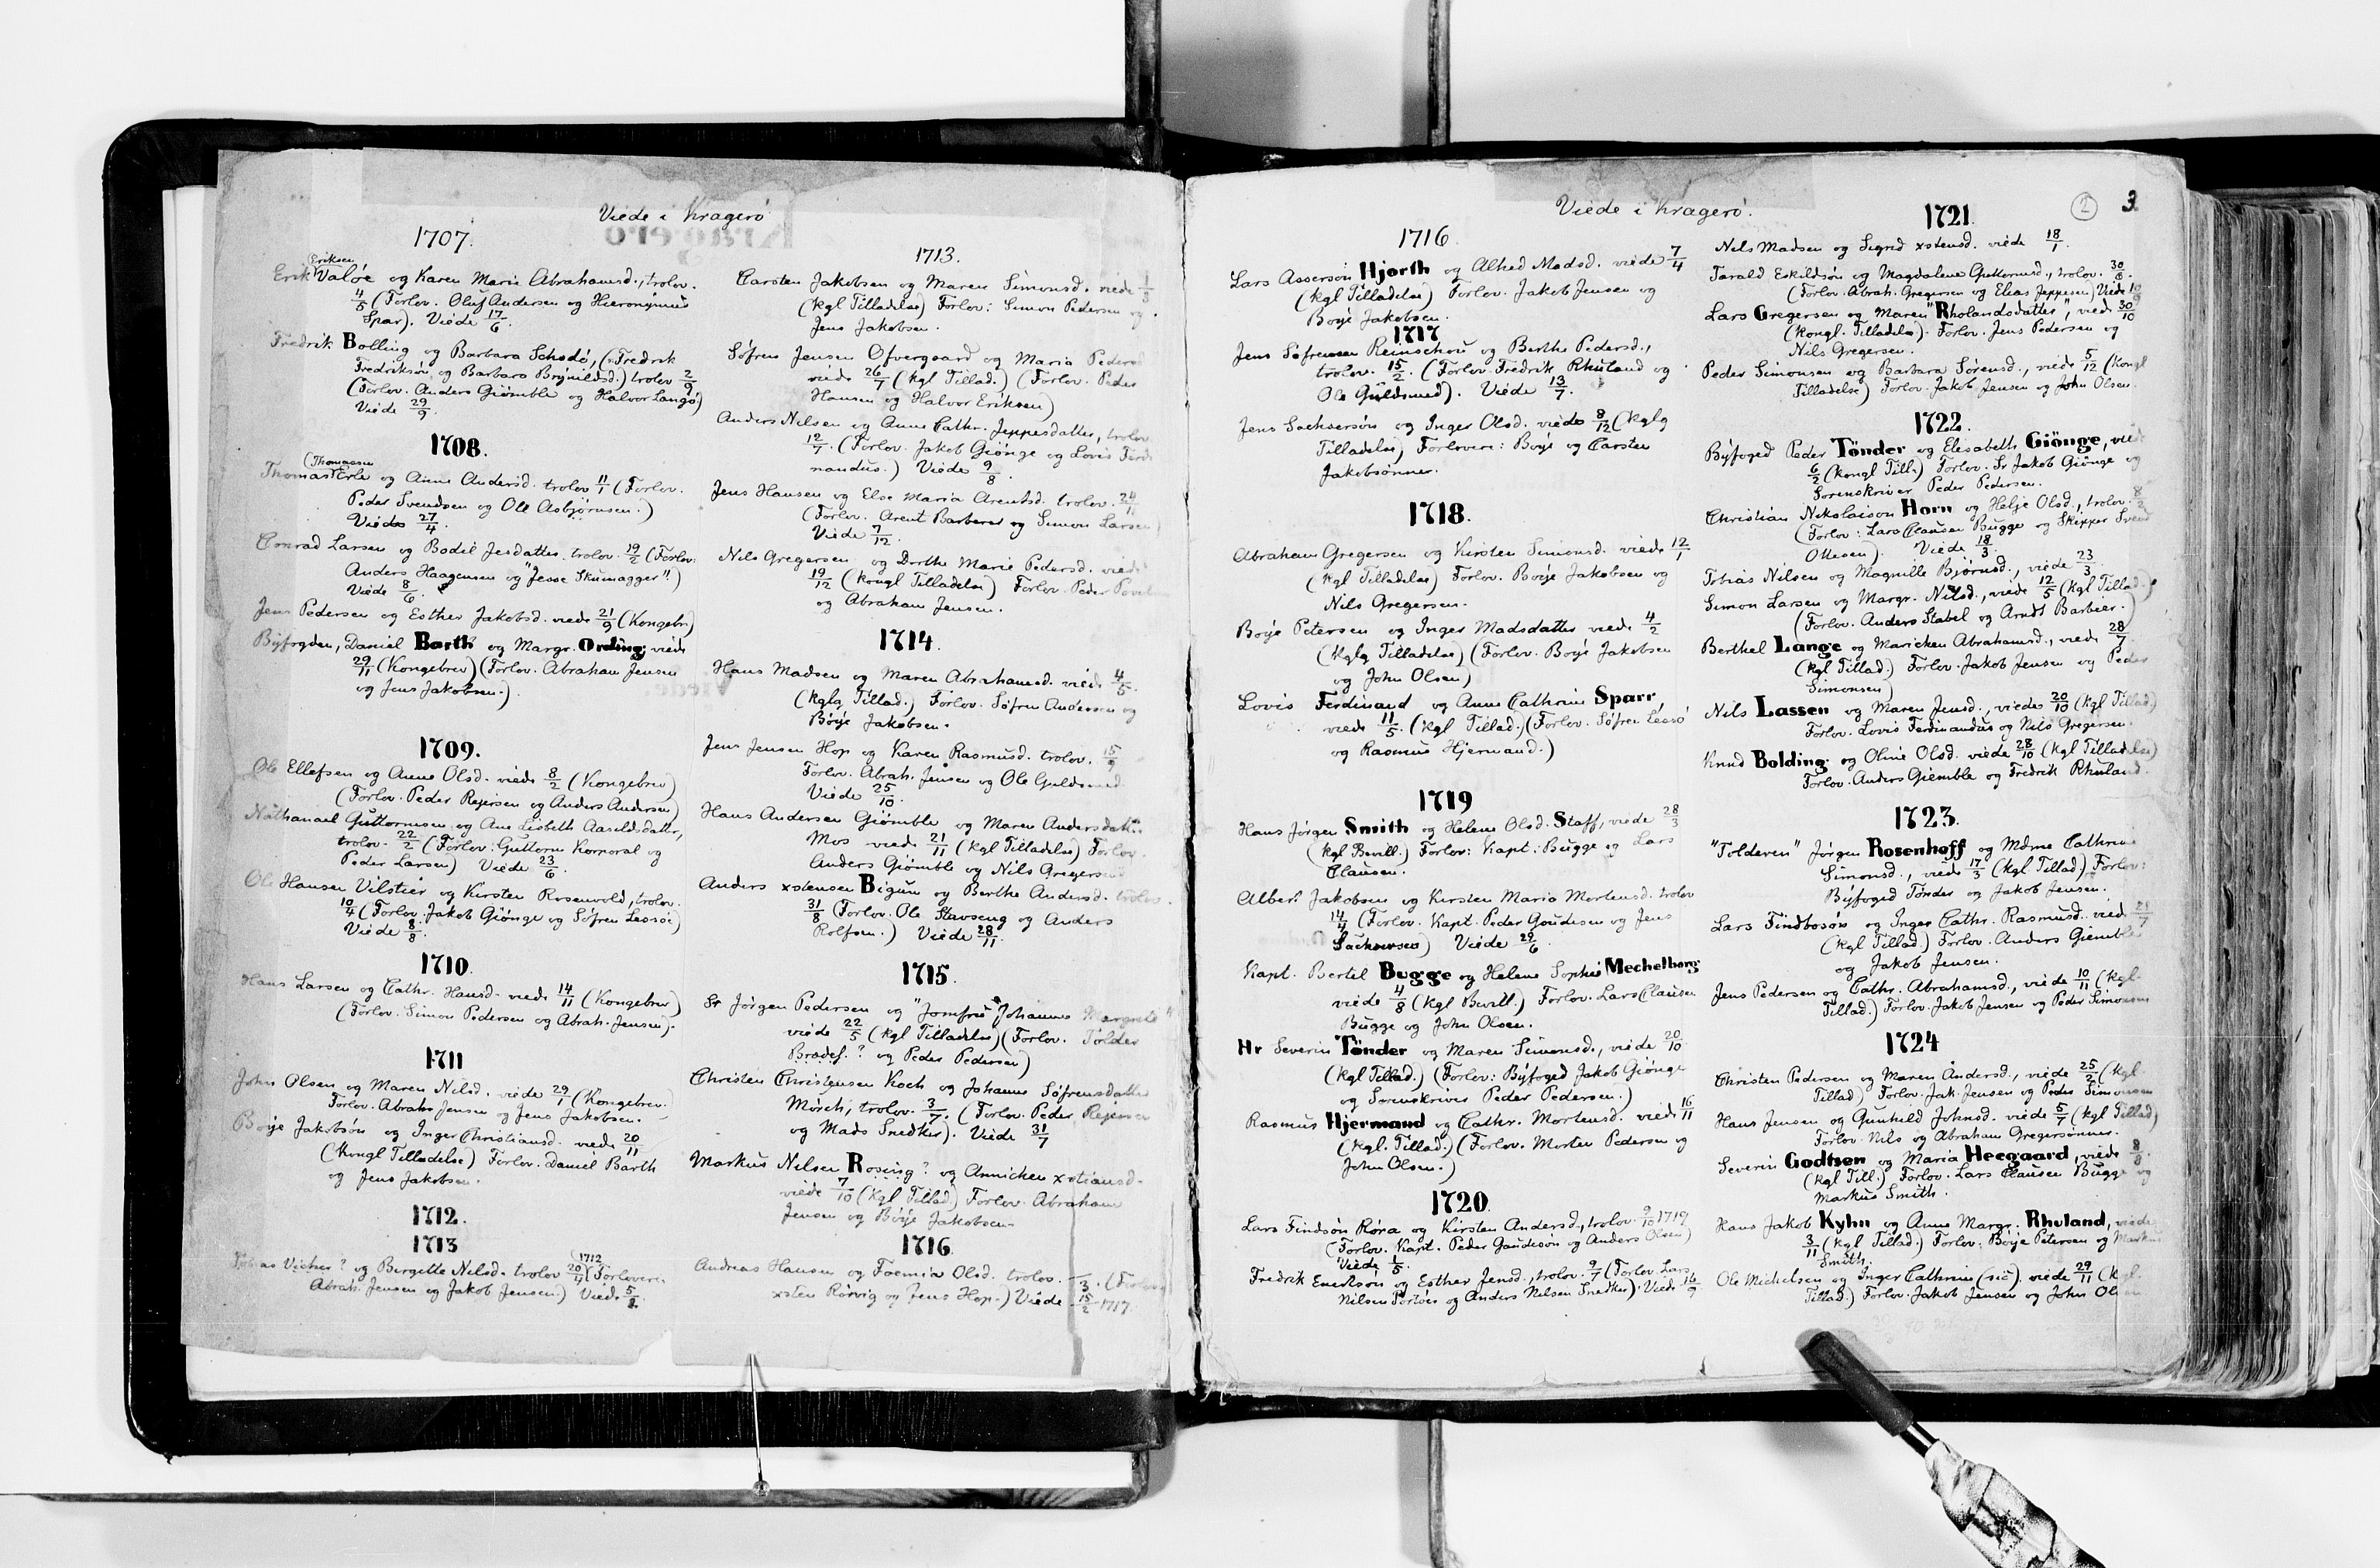 Viede i Kragerö
1707.
Eriksen
Erik Valöe og Karen Marie Abrahamsd., trolov.
4/5 (Forlov. Oluf Andersen og Hieronymus
Spar). Viede 17/6.
Fredrik Bolling og Barbara Schodö, (Fredrik
Fredriksön og Barbara Brynildsd.) trolov 2/9
(Forlov. Anders Giömble og Halvor Langö)
Viede 29/9.
1708.
(Thomassen
Thomas Erle og Anne Andersd. trolov 11/1 (Forlov.
Peder Svendsen og Ole Asbjörnsen.)
Viede 27/4.
Conrad Larsen og Bodil Jesdatter. trolov. 19/2 (Forlov:
Anders Haagensen og "Jesse Skumagger".)
Viede 8/6.
Jens Pedersen og Esther Jakobsd. viede 21/9 (Kongebr.)
Byfogden, Daniel Barth og Margr. Ording; viede
29/11 (Kongebrev) (Forlov. Abraham Jensen
og Jens Jakobsen.)
1709.
Ole Ellefsen og Anne Olsd. viede 8/2 (Kongebrev)
(Forlov. Peder Rejersen og Anders Andersen)
Nathanael Guttormsen og Ane Lisbeth Aaseldsdatter,
trolov. 22/2 (Forlov: Guttorm Korporal og
Peder Larsen) Viede 23/6.
Ole Hansen Vilstier og Kirsten Rosenvold, trolov.
10/4 (Forlov. Jakob Giönge og Söfren Lessöe)
Viede 8/8.
1710.
Hans Larsen og Cathr. Hansd. viede 14/11 (Kongebrev)
(Forlov. Simon Pedersen og Abrah. Jensen).
1711
John Olsen og Maren Nilsd. viede 29/1 (Kongebrev.
Forlov. Abrah. Jensen og Jens Jakobsen.
Boye Jakobsön og Inger Christiansd. viede 20/11
(Kongl Tilladelse) Forlov. Daniel Barth
og Jens Jakobsen.
1712.
1713
Tobias Vicher? og Birgitte Nilsd. trolov 20/4 (1712 (Forlovere
Abrah. Jensen og Jakob Jensen.) Viede 5/8.
1713.
Carsten Jakobsen og Maren Simonsd. viede 1/3
(kgl Tilladelse) Forlov: Simon Pedersen og
Jens Jakobsen.
Söfren Jensen Ofvergaard og Maria Pedersd
viede 26/7 (kgl Tillad.) (Forlov. Peder
Hansen og Halvor Eriksen)
Anders Nilsen og Anne Cathr. Jeppesdatter, trolov
12/7. (Forlov. Jakob Giönge og Lovis Ferdi
nandus.) Viede 9/8.
Jens Hansen og Else Maria Arentsd. trolov. 24/
(Forlov. Arent Barberer og Simon Larsen)
Viede 7/12.
Nils Gregersen og Dorthe Marie Pedersd. viede
19/12 (kongl Tilladelse) Forlov. Peder
og Abraham Jensen.
1714.
Hans Madsen og Maren Abrahamsd. viede 4/5.
(kglg Tillad.) Forlov. Söfren Andersen og
Böye Jakobsen.
Jens Jensen Hop og Karen Rasmusd. trolov. 15/9
Forlov. Abrah. Jensen og Ole Guldsmed
Viede 25/10.
Hans Andersen Giömble og Maren Andersdatter
Mos viede 21/11 (kgl Tilladelse) Forlov.
Anders Giömble og Nils Gregersen
Anders xstensen Bigum og Berthe Andersd. trolov.
31/8 (Forlov. Ole Stavseng og Anders
Rolfsen.) Viede 28/11.
1715.
Sr Jörgen Pedersen og "Jomfru" Johanne Margrete
viede 22/5 (kgl Tilladelse) (Forlov. Tolder
Brodef.? og Peder Pedersen)
Christen Christensen Koch og Johanne Söfrensdatter
Mörch, trolov. 3/7. (Forlov. Peder Rejersen
og Mads Snedker). Viede 31/7
Markus Nilsen Rosing? og Annicken xstiansd.
viede 7/10 (kgl Tillad) Forlov. Abraham
Jensen og Böye Jakobsen.
1716
Andreas Hansen og Foemia Olsd. trolov. –/3. (Forlov.
xsten Rörvig og Jens Hop.) Viede 15/2 1717.
Viede i Kragerö.
2 3
1716
Lars Asserson Hjorth og Alhed Madsd. viede 7/4
(kgl Tilladelse) Forlov. Jakob Jensen og
Boye Jakobsen.
1717
Jens Söfrensen Reinschou og Berthe Pedersd.,
trolov. 15/2. (Forlov. Fredrik Rhuland og
Ole Guldsmed). Viede 13/7.
Jens Sachsersön og Inger Olsd. viede 8/12 (kglg
Tilladelse) Forlovere: Boye og Carsten
Jakobsönner.
1718.
Abraham Gregersen og Kirsten Simonsd. viede 12/1
(kgl Tilladelse) Forlov. Boye Jakobsen og
Nils Gregersen.
Boye Petersen og Inger Madsdatter viede 4/2
(kglg Tilladelse) (Forlov. Boye Jakobsen
og John Olsen)
Lovis Ferdinand og Anne Cathrine Sparr
viede 11/5. (kgl Tillad.) (Forlov. Söfren Lessö
og Rasmus Hjermand.)
1719
Hans Jörgen Smith og Helene Olsd. Staff, viede 28/3
(kgl Bevill.) Forlov: Kapt: Bugge og Lars
Clausen.
Albert Jakobsen og Kirsten Maria Mortensd. trolov
14/4 (Forlov. Kapt. Peder Goudesen og Jens
Sachsersen) Viede 29/6.
Kapt. Bertel Bugge og Helene Sophie Mechelborg
viede 4/8 (kgl Bevill.) Forlov. Lars Clausen
Bugge og John Olsen.
Hr Severin Tönder og Maren Simonsd., viede 20/10
(kgl Tillad.) (Forlov: Byfoged Jakob Giönge
og Sorenskriver Peder Pedersen.)
Rasmus Hjermand og Cathr. Mortensd. viede 16/11
(kgl. Tillad.) (Forlov. Morten Pedersen og
John Olsen.)
1720.
Lars Findsön Röra og Kirsten Andersd., trolov. 9/10 1719
(Forlov. Kapt. Peder Gaudesön og Anders Olsen)
Viede 1/5.
Fredrik Evertsön og Esther Jensd., trolov. 9/7 (Forlov Lars
Nilsen Portöer og Anders Nilsen Snedker). Viede 16/9
1721.
Nils Madsen og Sigrid xstensd. viede 18/1.
Tarald Eskildsön og Magdalene Guttormsd., trolov. 30/6.
(Forlov. Abrah. Gregersen og Elias Jeppesen) Viede 10/9
Lars Gregersen og Maren "Rholandsdatter", viede 30/10
(kongl. Tilladelse). Forlov. Jens Pedersen og
Nils Gregersen.
Peder Simonsen og Barbara Sörensd., viede 5/12 (kongl
Tilladelse) Forlov. Jakob Jensen og John Olsen.
1722.
Byfoged Peder Tönder og Elisabeth Giönge, viede
6/2 (kongl Till.) Forlov. Sr Jakob Giönge og
Sorenskriver Peder Pedersen.
Christian Nikolaison Horn og Helje Olsd., trolov. 8/2
(Forlov: Lars Clausen Bugge og Skipper Svend
Ottesen). Viede 18/3.
Tobias Nilsen og Magnille Björnsd., viede 23/3.
Simon Larsen og Margr. Nilsd., viede 12/5 (kgl Tillad.)
(Forlov. Anders Stabel og Arndt Barbeer.)
Berthel Lange og Maricken Abrahamsd., viede 28/7.
(kgl Tillad.) Forlov. Jakob Jensen og Peder
Simonsen)
Nils Lassen og Maren Jensd., viedes 20/10 (kgl Tillad)
Forlov. Lovis Ferdinandus og Nils Gregersen.
Knud Bolding og Oline Olsd. viede 28/10 (kgl Tilladelse)
Forlov. Anders Giemble og Fredrik Rhuland.
1723.
"Tolderen" Jörgen Rosenhoff og Mdme Cathrine
Simonsd., viede 17/3 (kgl Tillad) Forlov:
Byfoged Tönder og Jakob Jensen.
Lars Findbosön og Inger Cathr. Rasmusd. viede 21/7
(kgl Tillad.) Forlov. Anders Giemble
og Jakob Jensen.
Jens Pedersen og Cathr. Abrahamsd., viede 10/11 (kgl.
Tillad.) Forlov. Jakob Jensen og Peder Simonsen
1724
Christen Pedersen og Maren Andersd., viede 25/2 (kgl
Tillad) Forlov. Jak. Jensen og Peder Simonsen
Hans Jensen og Gunhild Johnsd. viede 5/7 (kgl Tillad)
Forlov. Nils og Abraham Gregersönner.
Severin Godtsen og Maria Heegaard, viede 8/8.
(kgl Till.) Forlov. Lars Clausen Bugge og
Markus Smith.
Hans Jakob Kyhn og Anne Margr. Rhuland, viede
3/11 (kgl Tillad.) Forlov. Böye Petersen og Markus
Smith.
Ole Michelsen og Inger Cathrine (sic). viede 29/11 (kgl.
Tillad.) Forlov. Jakob Jensen og John Olsen